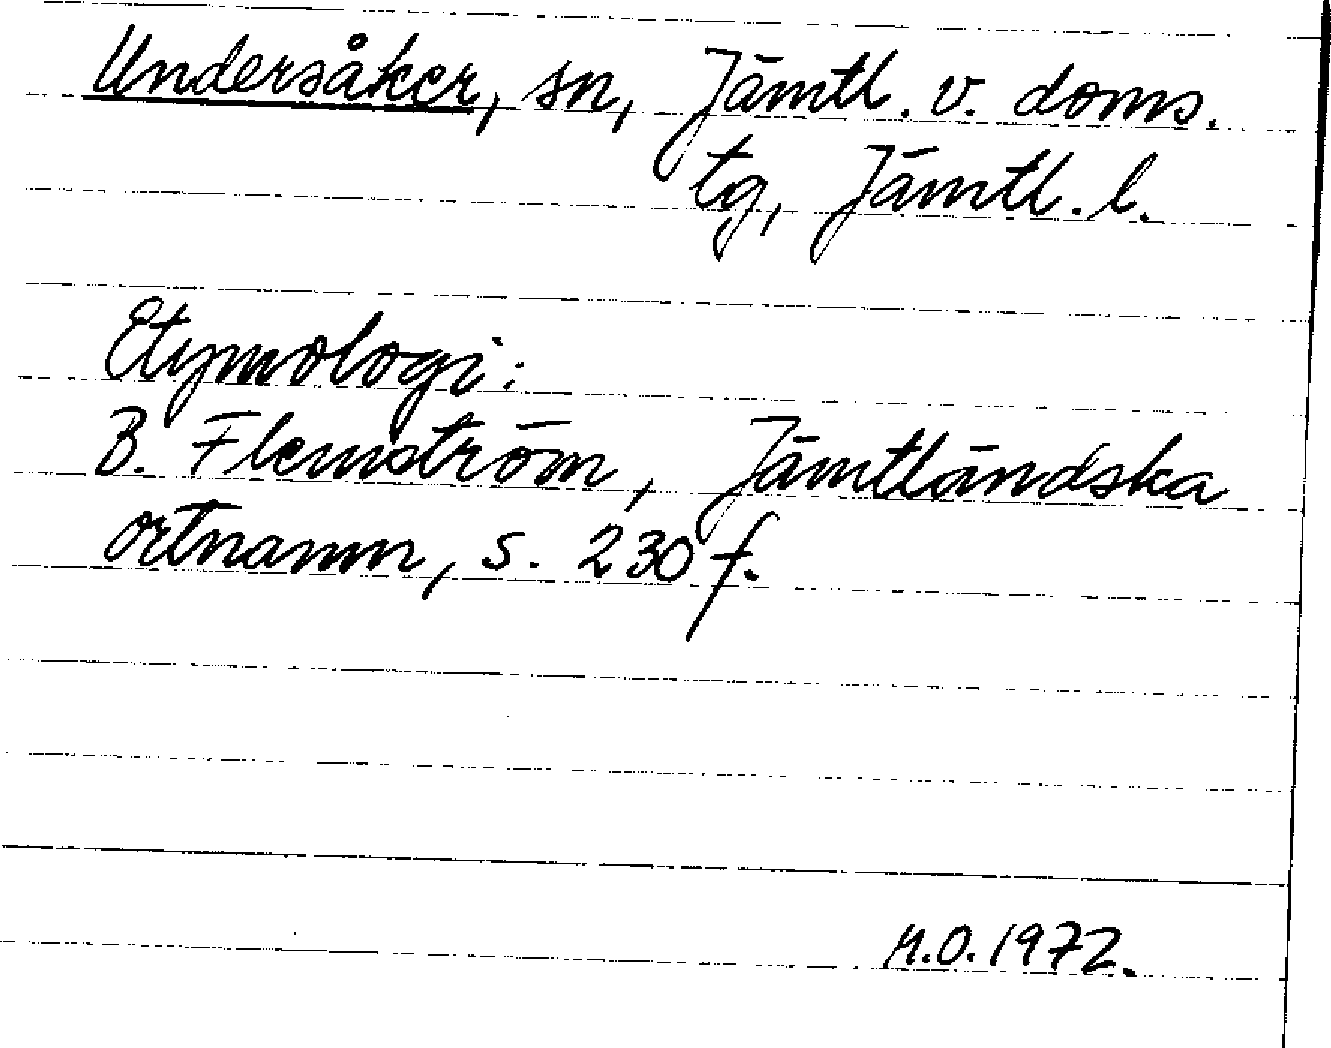 Undersåker, sn, Jämtl. v. doms.
tg, Jämtl. l.
Etymologi:
B. Flemström, Jämtländska
ortnamn, s. 230 f.
M.O. 1972.